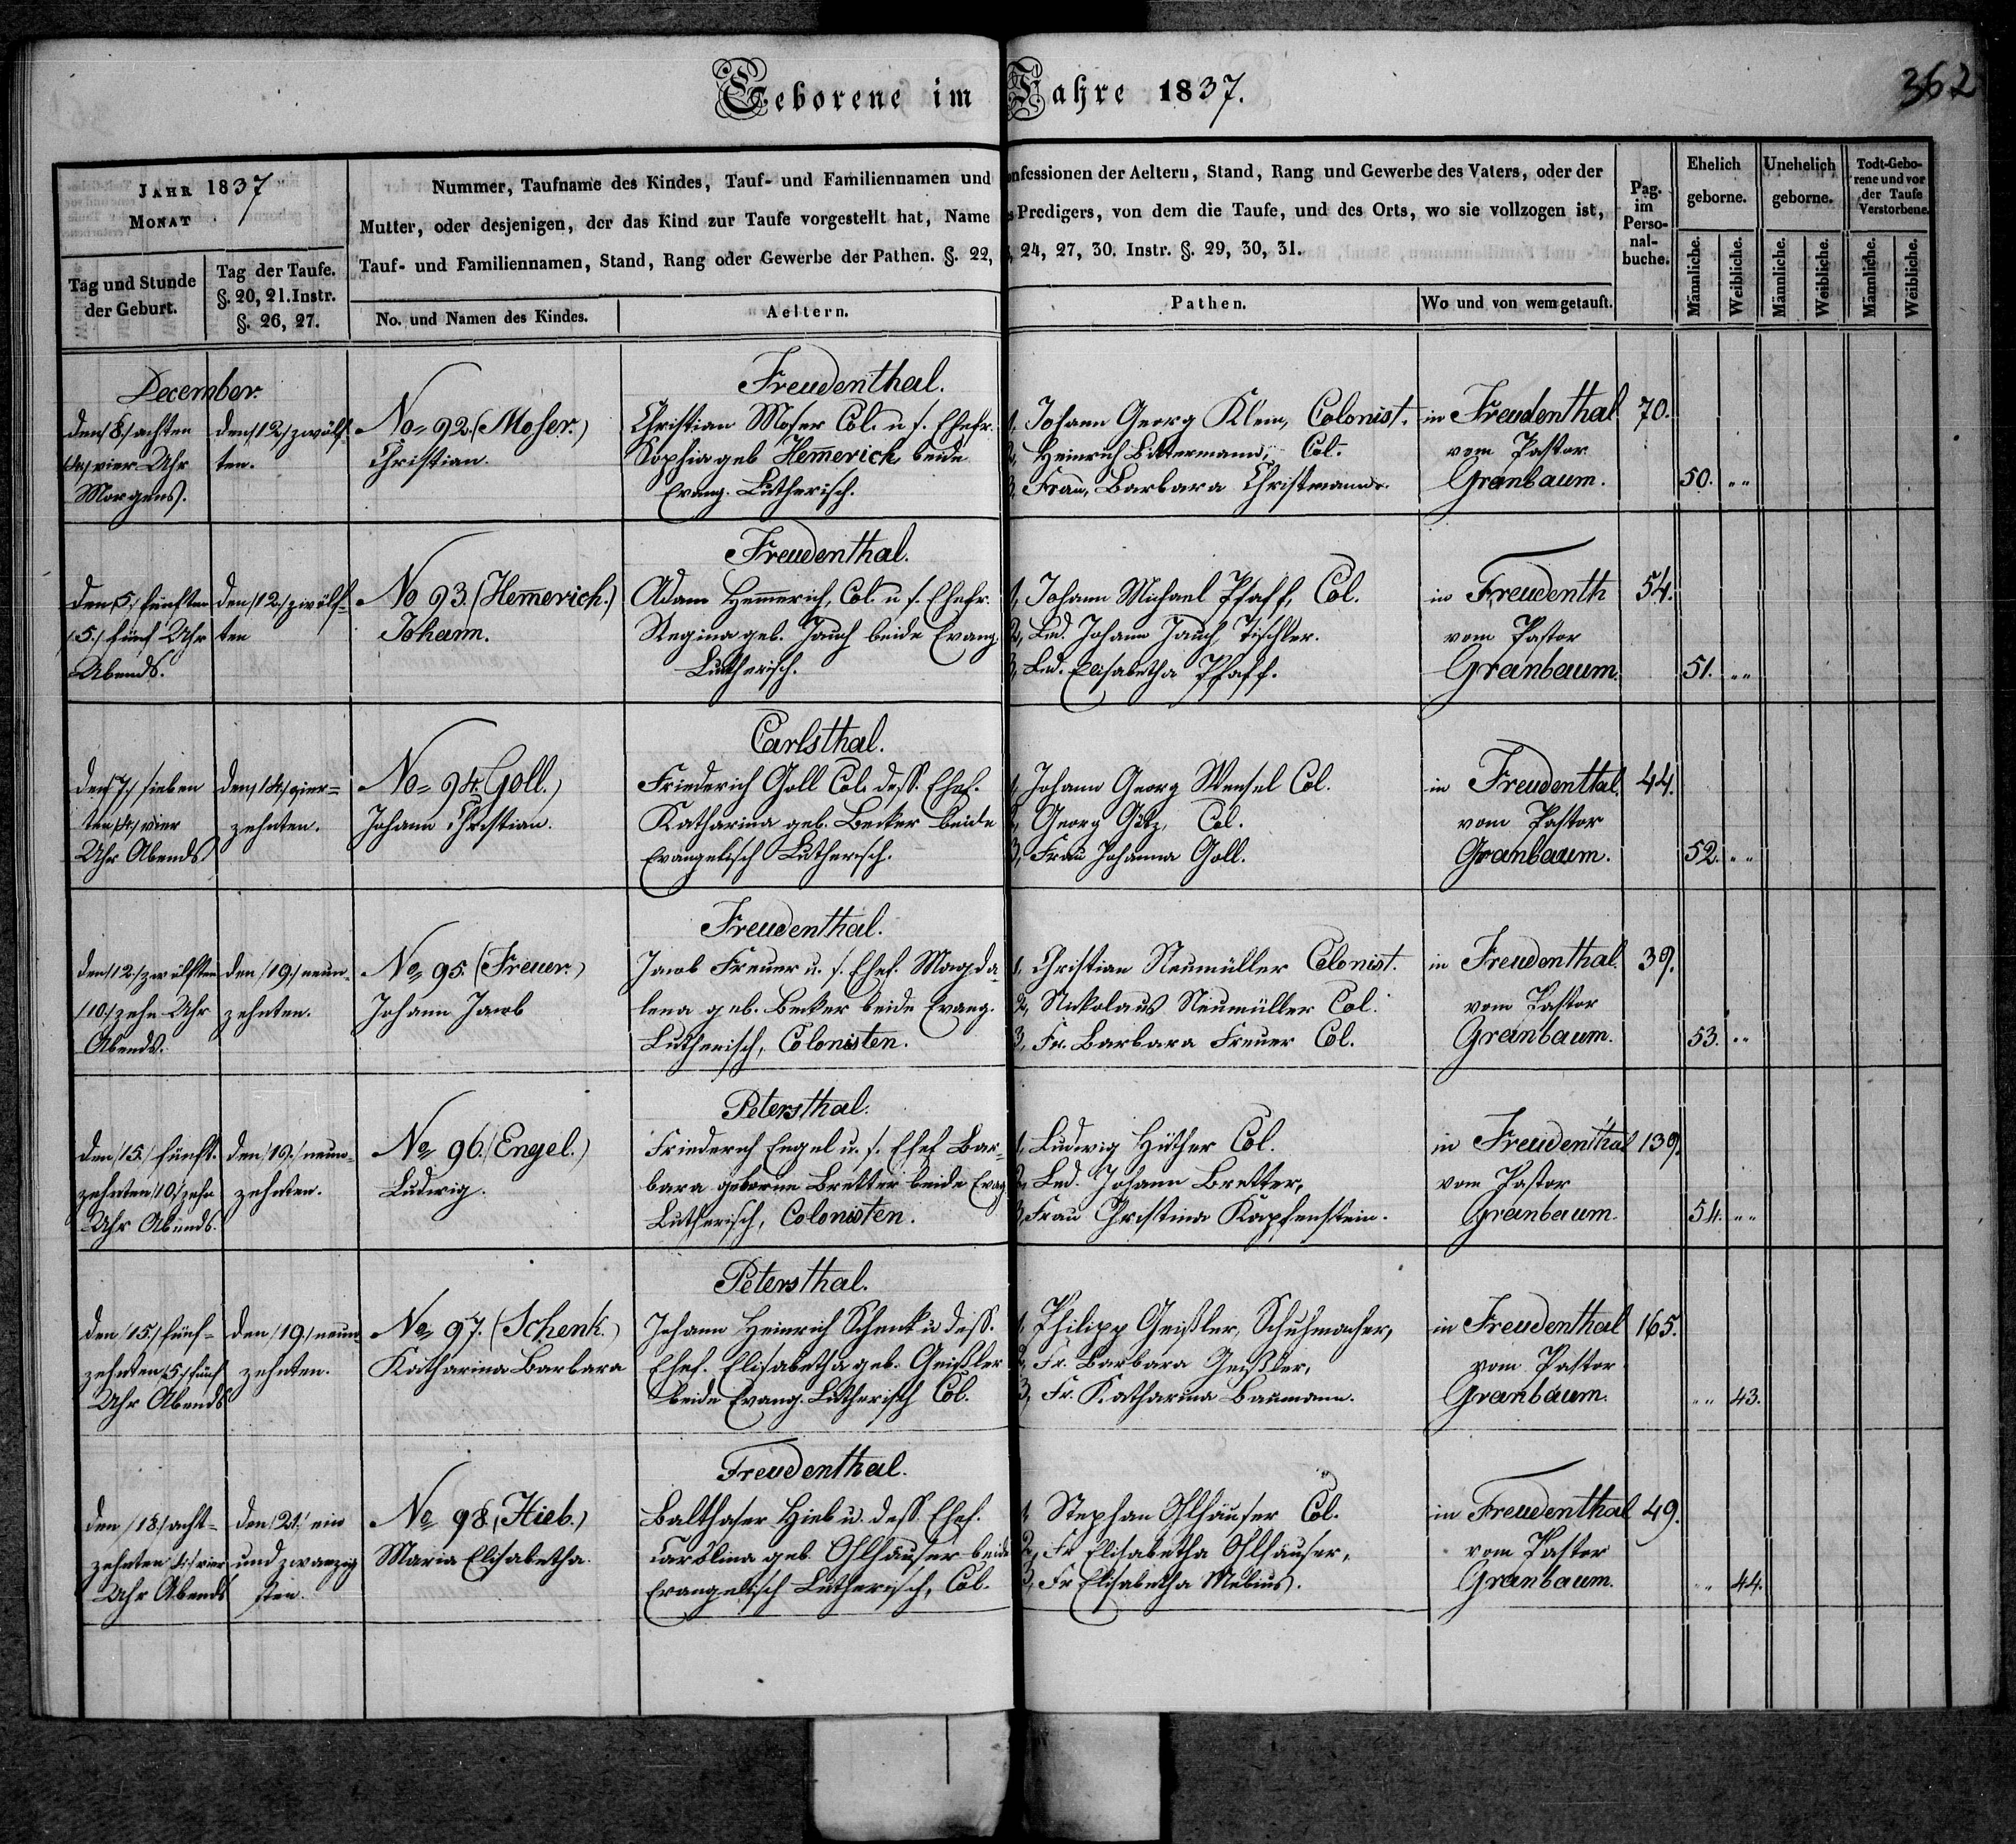 Geborene im Jahre 1837.
362
JAHR 1837
MONAT
Tag und Stunde der Geburt.
Tag der Taufe. §. 20, 21. Instr. §. 26, 27.
Nummer, Taufname des Kindes, Tauf- und Familiennamen und onfessionen der Aeltern, Stand, Rang und Gewerbe des Vaters, oder der
Mutter, oder desjenigen, der das Kind zur Taufe vorgestellt hat, Name s Predigers, von dem die Taufe, und des Orts, wo sie vollzogen ist,
Tauf- und Familiennamen, Stand, Rang oder Gewerbe der Pathen. §. 22, 24, 27, 30. Instr. §. 29, 30, 31.
No. und Namen des Kindes.
Aeltern.
Pathen.
Wo und von wem getauft.
Pag. im Perso-nal-buche.
Ehelich geborne.
Unehelich geborne.
Todt-Gebo-rene und vor der Taufe Verstorbene.
Männliche. Weibliche. Männliche. Weibliche. Männliche. Weibliche.
December.
den /8./ achten
/4./ vier Uhr
Morgens.
den /12./ zwölf-
ten.
No= 92. (Moser.)
Christian.
Freudenthal.
Christian Moser Col. u. s. Ehefr.
Sophia geb Hem̄erich beide
Evang. Lutherisch.
1, Johann Georg Klein, Colonist.
2, Heinrich Bittermann, Col.
3, Frau, Barbara Christmann.
in Freudenthal
vom Pastor
Granbaum.
70.
50. "
den /5./ fünften
/5./ fünf Uhr
Abends.
den /12./ zwölf-
ten
No 93. (Hem̄erich.)
Johann.
Freudenthal.
Adam Hem̄erich, Col. u. s. Ehefr.
Regina geb. Jauch beide Evang.
Lutherisch.
1, Johann Michael Pfaff, Col.
2, Led. Johann Jauch, Tischler.
3, Led. Elisabetha Pfaff.
in Freudenth
vom Pastor
Granbaum.
54.
51. "
den /7./ sieben
ten /4./ vier
Uhr Abends
den /14./ vier=
zehnten.
No= 94. Goll.)
Johann Christian.
Carlsthal.
Friederich Goll Col. dess. Ehef.
Katharina geb. Becker beide
Evangelisch Lutherisch.
1, Johann Georg Wensel Col.
2, Georg Götz, Col.
3, Frau Johanna Goll.
in Freudenthal.
vom Pastor
Granbaum.
44.
52. "
den /12./ zwölften
/10./ zehn Uhr
Abends.
den /19./ neun-
zehnten.
No= 95. (Freuer.)
Johann Jacob
Freudenthal.
Jacob Freuer u. s. Ehef. Magda-
lena geb. Becker beide Evang.
Lutherisch, Colonisten.
1, Christian Neumüller Colonist.
2, Nickolaus Neumüller Col.
3, Fr. Barbara Freuer Col.
in Freudenthal.
vom Pastor
Granbaum.
39.
53. "
den /15./ fünft-
zehnten /10./ zehn
Uhr Abends.
den /19./ neun-
zehnten.
No= 96. (Engel.)
Ludwig.
Petersthal.
Friederich Engel u. s. Ehef Bar-
bara geborne Bretter beide Evag
Lutherisch, Colonisten.
1, Ludwig Hüther Col.
2, Led. Johann Bretter,
3, Frau Christina Kapfenstein.
in Freudenthal
vom Pastor
Granbaum
139.
54. "
den /15./ fünf-
zehnten /5./ fünf
Uhr Abends
den /19./ neun
zehnten.
No= 97. (Schenk.)
Katharina Barbara
Petersthal.
Johann Heinrich Schenk u. dess.
Ehef. Elisabetha geb. Geißler
beide Evang. Lutherisch Col.
1, Philipp Geißler, Schuhmacher,
2, Fr. Barbara Geißler,
3, Fr. Katharina Baumann.
in Freudenthal
vom Pastor
Granbaum.
165.
" 43.
den /18./ acht-
zehnten /4./ vier
Uhr Abends
den /21./ ein
und zwanzig
sten.
No= 98. (Hieb.)
Maria Elisabetha.
Freudenthal.
Balthaser Hieb u. dess. Ehef.
Carolina geb. Ohlhäuser beide
Evangelisch Lutherisch, Col.
1, Stephan Ohlhäuser Col.
2, Fr Elisabetha Ohlhäuser,
3, Fr Elisabetha Mebius.
in Freudenthal
vom Pastor
Granbaum.
49.
" 44.